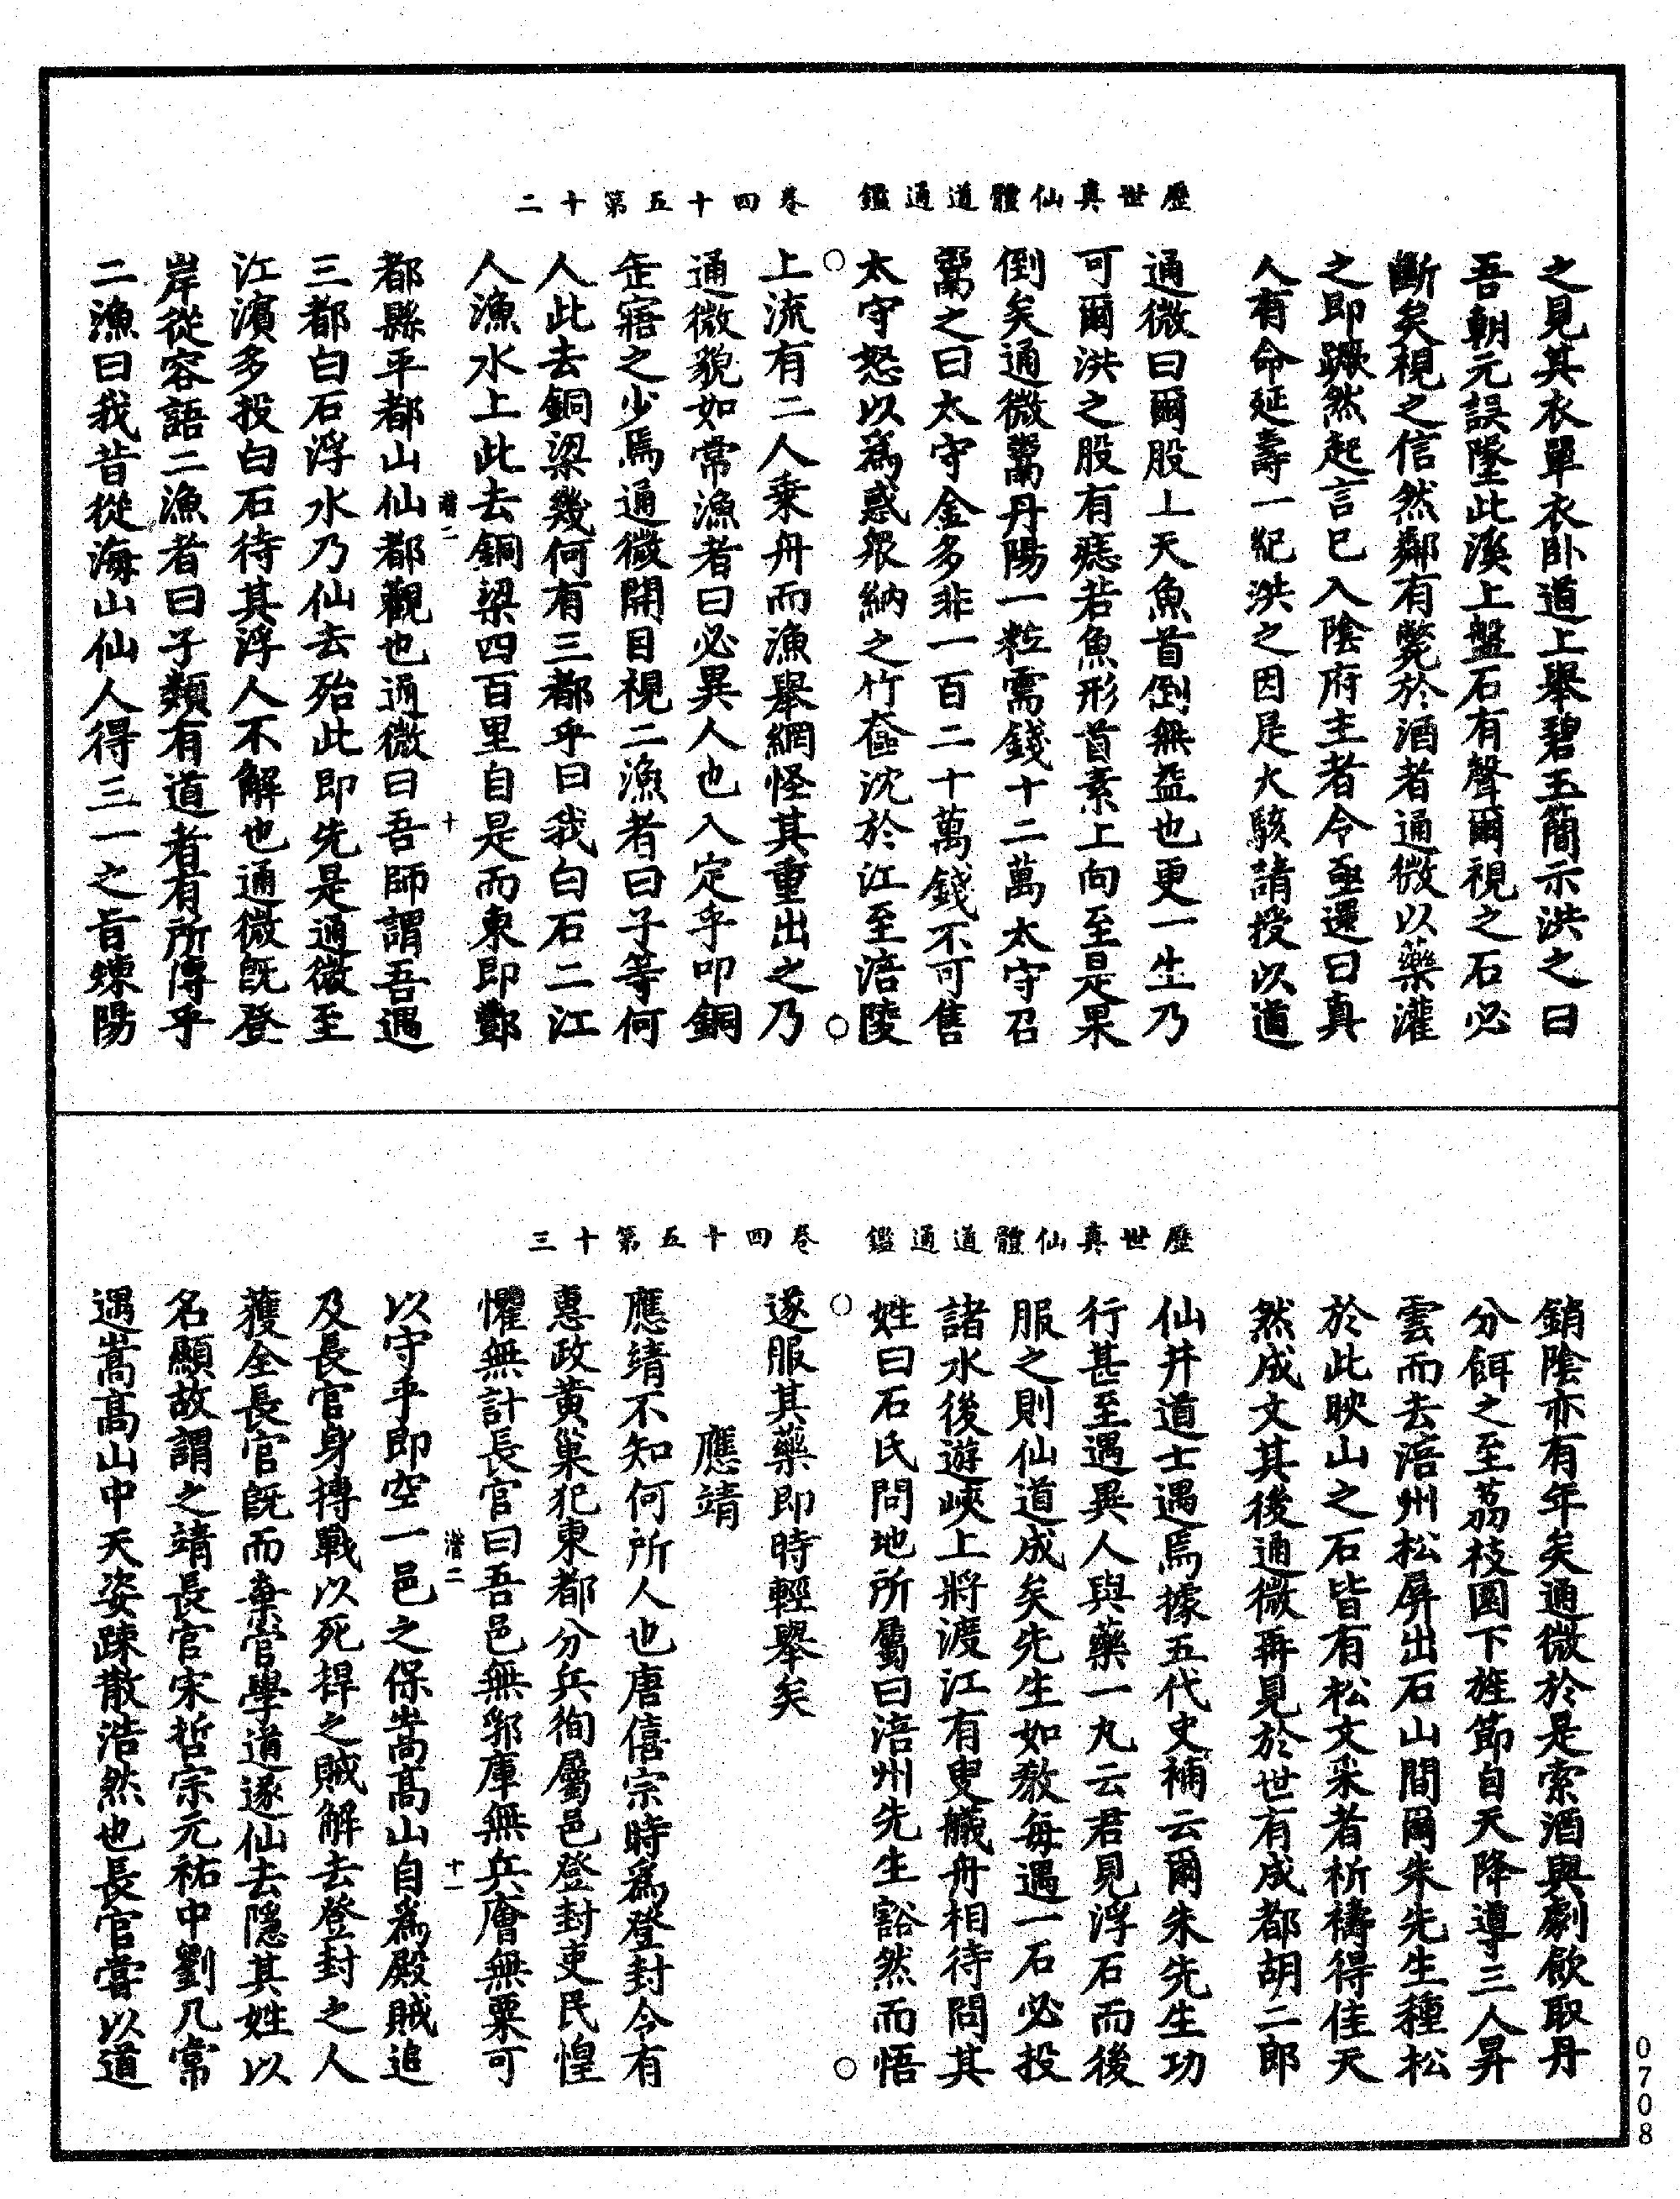 歷世真仙體道通鑑　卷四十五第十二
之見其衣單衣卧道上舉碧玉簡示洪之曰
吾朝元誤墜此溪上盤石有聲爾視之石必
斷矣視之信然鄰有斃於酒者通微以藥灌
之即蹶然起言已入陰府主者令亟還曰真
人有命延壽一紀洪之因是大駭請授以道
通微曰爾股上天魚首倒無益也更一生乃
可爾洪之股有痣若魚形首素上向至是果
倒矣通微鬻丹陽一粒需錢十二萬太守召
鬻之曰太守金多非一百二十萬錢不可售
太守怒以為惑眾納之竹奩沈於江至涪陵
上流有二人乘舟而漁舉網怪其重出之乃
通微貌如常漁者曰必異人也入定乎叩銅
缶寤之少焉通微開目視二漁者曰子等何
人此去銅梁幾何有三都乎曰我白石二江
人漁水上此去銅梁四百里自是而東即酆
都縣平都山仙都觀也通微曰吾師謂吾遇
三都白石浮水乃仙去殆此即先是通微至
江濱多投白石待其浮人不解也通微既登
岸從容語二漁者曰子類有道者有所傳乎
二漁曰我昔從海山仙人得三一之旨煉陽
潛二　十
歷世真仙體道通鑑　卷四十五第十三
銷陰亦有年矣通微於是索酒與劇飲取丹
分餌之至荔枝園下旌節自天降導三人昇
雲而去涪州松屏出石山間爾朱先生種松
於此映山之石皆有松文采者祈禱得佳天
然成文其後通微再見於世有成都胡二郎
仙井道士遇焉據五代史補云爾朱先生功
行甚至遇異人與藥一丸云君見浮石而後
服之則仙道成矣先生如教每遇一石必投
諸水後遊峽上將渡江有叟艤舟相待問其
姓曰石氏問地所屬曰涪州先生豁然而悟
遂服其藥即時輕舉矣
應靖
應靖不知何所人也唐僖宗時為登封令有
惠政黃巢犯東都分兵徇屬邑登封吏民惶
懼無計長官曰吾邑無郛庫無兵廥無粟可
以守乎即空一邑之保嵩高山自為殿賊追
及長官身摶戰以死捍之賊解去登封之人
獲全長官既而棄官學道遂仙去隱其姓以
名顯故謂之靖長官宋哲宗元祐中劉几常
遇嵩高山中天姿疎散浩然也長官嘗以道
潛二　十一
0708